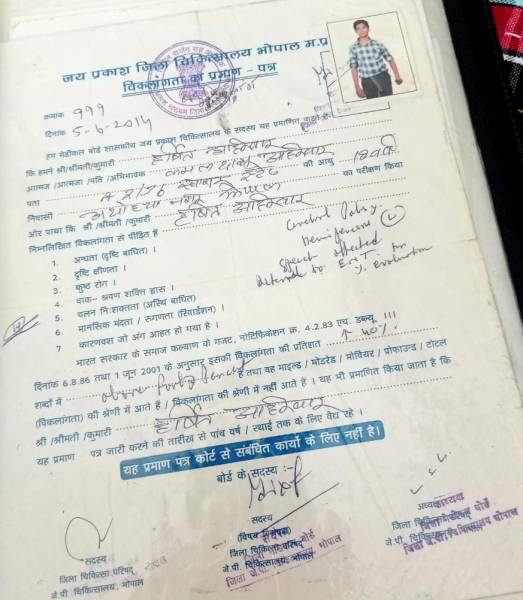 जय प्रकाश जिला चिकित्सालय भोपाल म.प्र
विकलांगता का प्रमाण - पत्र
क्रमांक 999
दिनांक 5-6-2014
हम मेडीकल बोर्ड शासकीय जय प्रकाश चिकित्सालय के सदस्य यह प्रमाणित करते हैं
कि हमने श्री/श्रीमती/कुमारी हर्षित अहिरवार
आत्मज /आत्मजा /पति /अभिभावक कमल दास अहिरवार की आयु
पता
निवासी अयोध्या नगर भोपाल का परीक्षण किया
और पाया कि श्री /श्रीमती /कुमारी हर्षित अहिरवार
निम्नलिखित विकलांगता से पीड़ित है
1. अन्धता (दृष्टि बाधित) ।
2. दृष्टि क्षीणता ।
3. कुष्ठ रोग ।
4. वाक- श्रवण शक्ति ह्रास ।
5. चलन निःशक्तता (अस्थि बाधित)
6. मानसिक मंदता / रूग्णता (रिटार्डेशन) ।
7 कारणवश जो अंग आहत हो गया है ।
Cerebral Palsy
Hemiparesis
Speech affected
Referred to E.N.T. for
% evaluation
भारत सरकार के समाज कल्याण के गजट, नोटिफिकेशन क्र. 4.2.83 एच. डब्ल्यू III
दिनांक 6.8.86 तथा 1 जून 2001 के अनुसार इसकी विकलांगता की प्रतिशत 40%
शब्दों में है तथा वह माइल्ड / मोडरेड / सीवियर / प्रोफाउन्ड / टोटल
(विकलांगता) की श्रेणी में आते है / विकलांगता की श्रेणी में नहीं आते है । यह भी प्रमाणित किया जाता है कि
श्री /श्रीमती /कुमारी हर्षित अहिरवार
यह प्रमाण पत्र जारी करने की तारीख से पांच वर्ष / स्थाई तक के लिए वैद्य रहे ।
यह प्रमाण पत्र कोर्ट से संबंधित कार्यो के लिए नहीं है।
बोर्ड के सदस्य :-
सदस्य
जिला चिकित्सा परिषद्
जे.पी. चिकित्सालय, भोपाल
सदस्य
(विषय विशेषज्ञ)
जिला चिकित्सा परिषद्
जे.पी. चिकित्सालय, भोपाल
अध्यक्ष
जिला चिकित्सा परिषद्
जे.पी. चिकित्सालय, भोपाल